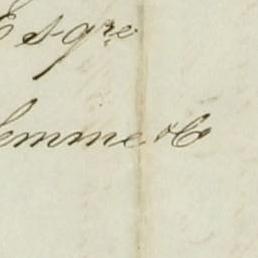 Esqre
emme & Co